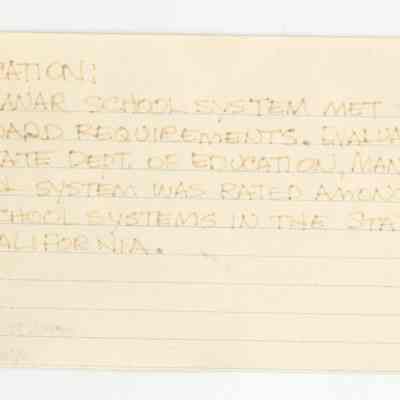 CATION:
ANAR SCHOOL SYSTEM MET
DARD REQUIREMENTS. EVALUA
ATE DEPT. OF EDUCATION, MAN
OL SYSTEM WAS RATED AMONG
CHOOL SYSTEMS IN THE STA
ALIFORNIA.